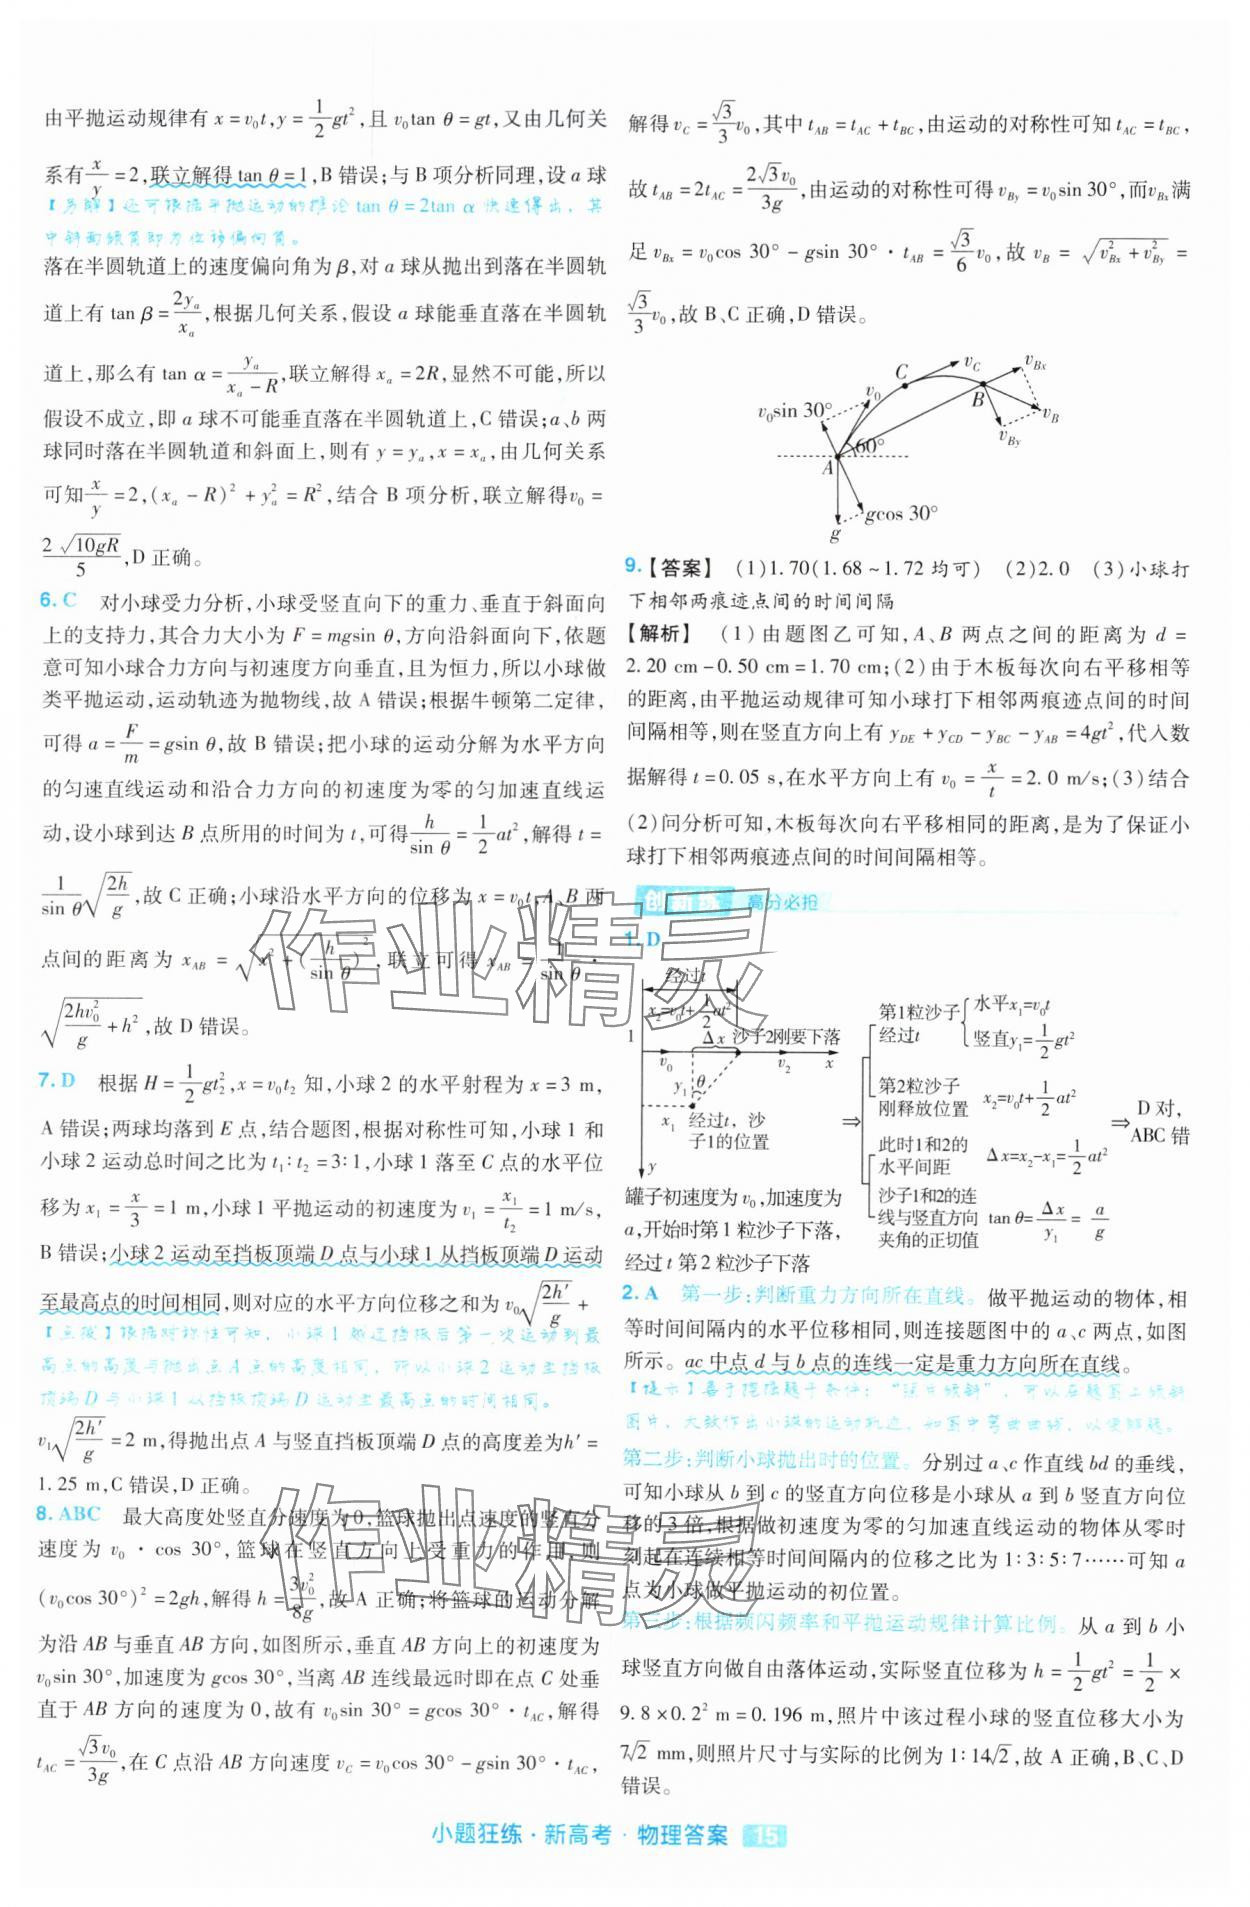 由平抛运动规律有 x = v₀t, y = 1/2 gt², 且 v₀tan θ = gt, 又由几何关
系有 x/y = 2, 联立解得 tan θ = 1, B 错误; 与 B 项分析同理, 设 a 球
【另解】还可根据平抛运动的推论 tan θ = 2tan α 快速得出, 其
中斜面倾角即为位移偏向角。
落在半圆轨道上的速度偏向角为 β, 对 a 球从抛出到落在半圆轨
道上有 tan β = 2yₐ/xₐ, 根据几何关系, 假设 a 球能垂直落在半圆轨
道上, 那么有 tan α = yₐ/(xₐ − R), 联立解得 xₐ = 2R, 显然不可能, 所以
假设不成立, 即 a 球不可能垂直落在半圆轨道上, C 错误; a、b 两
球同时落在半圆轨道和斜面上, 则有 y = yₐ, x = xₐ, 由几何关系
可知 x/y = 2, (xₐ − R)² + yₐ² = R², 结合 B 项分析, 联立解得 v₀ =
2√(10gR)/5, D 正确。
6. C 对小球受力分析, 小球受竖直向下的重力、垂直于斜面向
上的支持力, 其合力大小为 F = mgsin θ, 方向沿斜面向下, 依题
意可知小球合力方向与初速度方向垂直, 且为恒力, 所以小球做
类平抛运动, 运动轨迹为抛物线, 故 A 错误; 根据牛顿第二定律,
可得 a = F/m = gsin θ, 故 B 错误; 把小球的运动分解为水平方向
的匀速直线运动和沿合力方向的初速度为零的匀加速直线运
动, 设小球到达 B 点所用的时间为 t, 可得 h/sin θ = 1/2 at², 解得 t =
1/sin θ √(2h/g), 故 C 正确; 小球沿水平方向的位移为 x = v₀t, A、B 两
点间的距离为 x_AB = √(x² + (h/sin θ)²), 联立可得 x_AB = 1/sin θ ·
√(2hv₀²/g + h²), 故 D 错误。
7. D 根据 H = 1/2 gt₂², x = v₀t₂ 知, 小球 2 的水平射程为 x = 3 m,
A 错误; 两球均落到 E 点, 结合题图, 根据对称性可知, 小球 1 和
小球 2 运动总时间之比为 t₁∶t₂ = 3∶1, 小球 1 落至 C 点的水平位
移为 x₁ = x/3 = 1 m, 小球 1 平抛运动的初速度为 v₁ = x₁/t₂ = 1 m/s,
B 错误; 小球 2 运动至挡板顶端 D 点与小球 1 从挡板顶端 D 运动
至最高点的时间相同, 则对应的水平方向位移之和为 v₀√(2h′/g) +
【点拨】根据对称性可知, 小球 1 越过挡板后第一次运动到最
高点的高度与抛出点 A 点的高度相同, 所以小球 2 运动至挡板
顶端 D 与小球 1 从挡板顶端 D 运动至最高点的时间相同。
v₁√(2h′/g) = 2 m, 得抛出点 A 与竖直挡板顶端 D 点的高度差为 h′ =
1.25 m, C 错误, D 正确。
8. ABC 最大高度处竖直分速度为 0, 篮球抛出点速度的竖直分
速度为 v₀ · cos 30°, 篮球在竖直方向上受重力的作用, 则
(v₀cos 30°)² = 2gh, 解得 h = 3v₀²/8g, 故 A 正确; 将篮球的运动分解
为沿 AB 与垂直 AB 方向, 如图所示, 垂直 AB 方向上的初速度为
v₀sin 30°, 加速度为 gcos 30°, 当离 AB 连线最远时即在点 C 处垂
直于 AB 方向的速度为 0, 故有 v₀sin 30° = gcos 30° · t_AC, 解得
t_AC = √3v₀/3g, 在 C 点沿 AB 方向速度 v_C = v₀cos 30° − gsin 30° · t_AC,
解得 v_C = √3/3 v₀, 其中 t_AB = t_AC + t_BC, 由运动的对称性可知 t_AC = t_BC,
故 t_AB = 2t_AC = 2√3v₀/3g, 由运动的对称性可得 v_By = v₀sin 30°, 而 v_Bx 满
足 v_Bx = v₀cos 30° − gsin 30° · t_AB = √3/6 v₀, 故 v_B = √(v_Bx² + v_By²) =
√3/3 v₀, 故 B、C 正确, D 错误。
C v_C v_Bx
v₀
v₀sin 30° B v_B
v_By
60°
A
gcos 30°
g
9.【答案】 (1)1.70(1.68~1.72 均可) (2)2.0 (3)小球打
下相邻两痕迹点间的时间间隔
【解析】 (1) 由题图乙可知, A、B 两点之间的距离为 d =
2.20 cm − 0.50 cm = 1.70 cm; (2) 由于木板每次向右平移相等
的距离, 由平抛运动规律可知小球打下相邻两痕迹点间的时间
间隔相等, 则在竖直方向上有 y_DE + y_CD − y_BC − y_AB = 4gt², 代入数
据解得 t = 0.05 s, 在水平方向上有 v₀ = x/t = 2.0 m/s; (3) 结合
(2) 问分析可知, 木板每次向右平移相同的距离, 是为了保证小
球打下相邻两痕迹点间的时间间隔相等。
创新练 高分必抢
1. D
经过t
x₂=v₀t+1/2 at²
1 Δx 沙子2刚要下落
v₀ v₂ x
y₁ θ
x₁ 经过t，沙
子1的位置
y
罐子初速度为 v₀, 加速度为
a, 开始时第 1 粒沙子下落,
经过 t 第 2 粒沙子下落
⇒
第1粒沙子经过t 水平x₁=v₀t 竖直y₁=1/2 gt²
第2粒沙子刚释放位置 x₂=v₀t+1/2 at²
此时1和2的水平间距 Δx=x₂-x₁=1/2 at²
沙子1和2的连线与竖直方向夹角的正切值 tan θ=Δx/y₁=a/g
⇒ D 对, ABC 错
2. A 第一步:判断重力方向所在直线。做平抛运动的物体, 相
等时间间隔内的水平位移相同, 则连接题图中的 a、c 两点, 如图
所示。ac 中点 d 与 b 点的连线一定是重力方向所在直线。
【提示】善于挖掘题干条件: “照片倾斜”, 可以在题图上倾斜
图片, 大致作出小球的运动轨迹, 如图中弯曲曲线, 以便解题。
第二步:判断小球抛出时的位置。分别过 a、c 作直线 bd 的垂线,
可知小球从 b 到 c 的竖直方向位移是小球从 a 到 b 竖直方向位
移的 3 倍, 根据做初速度为零的匀加速直线运动的物体从零时
刻起在连续相等时间间隔内的位移之比为 1∶3∶5∶7……可知 a
点为小球做平抛运动的初位置。
第三步:根据频闪频率和平抛运动规律计算比例。从 a 到 b 小
球竖直方向做自由落体运动, 实际竖直位移为 h = 1/2 gt² = 1/2 ×
9.8×0.2² m = 0.196 m, 照片中该过程小球的竖直位移大小为
7√2 mm, 则照片尺寸与实际的比例为 1∶14√2, 故 A 正确, B、C、D
错误。
作业精灵
作业精灵
小题狂练 · 新高考 · 物理答案 15